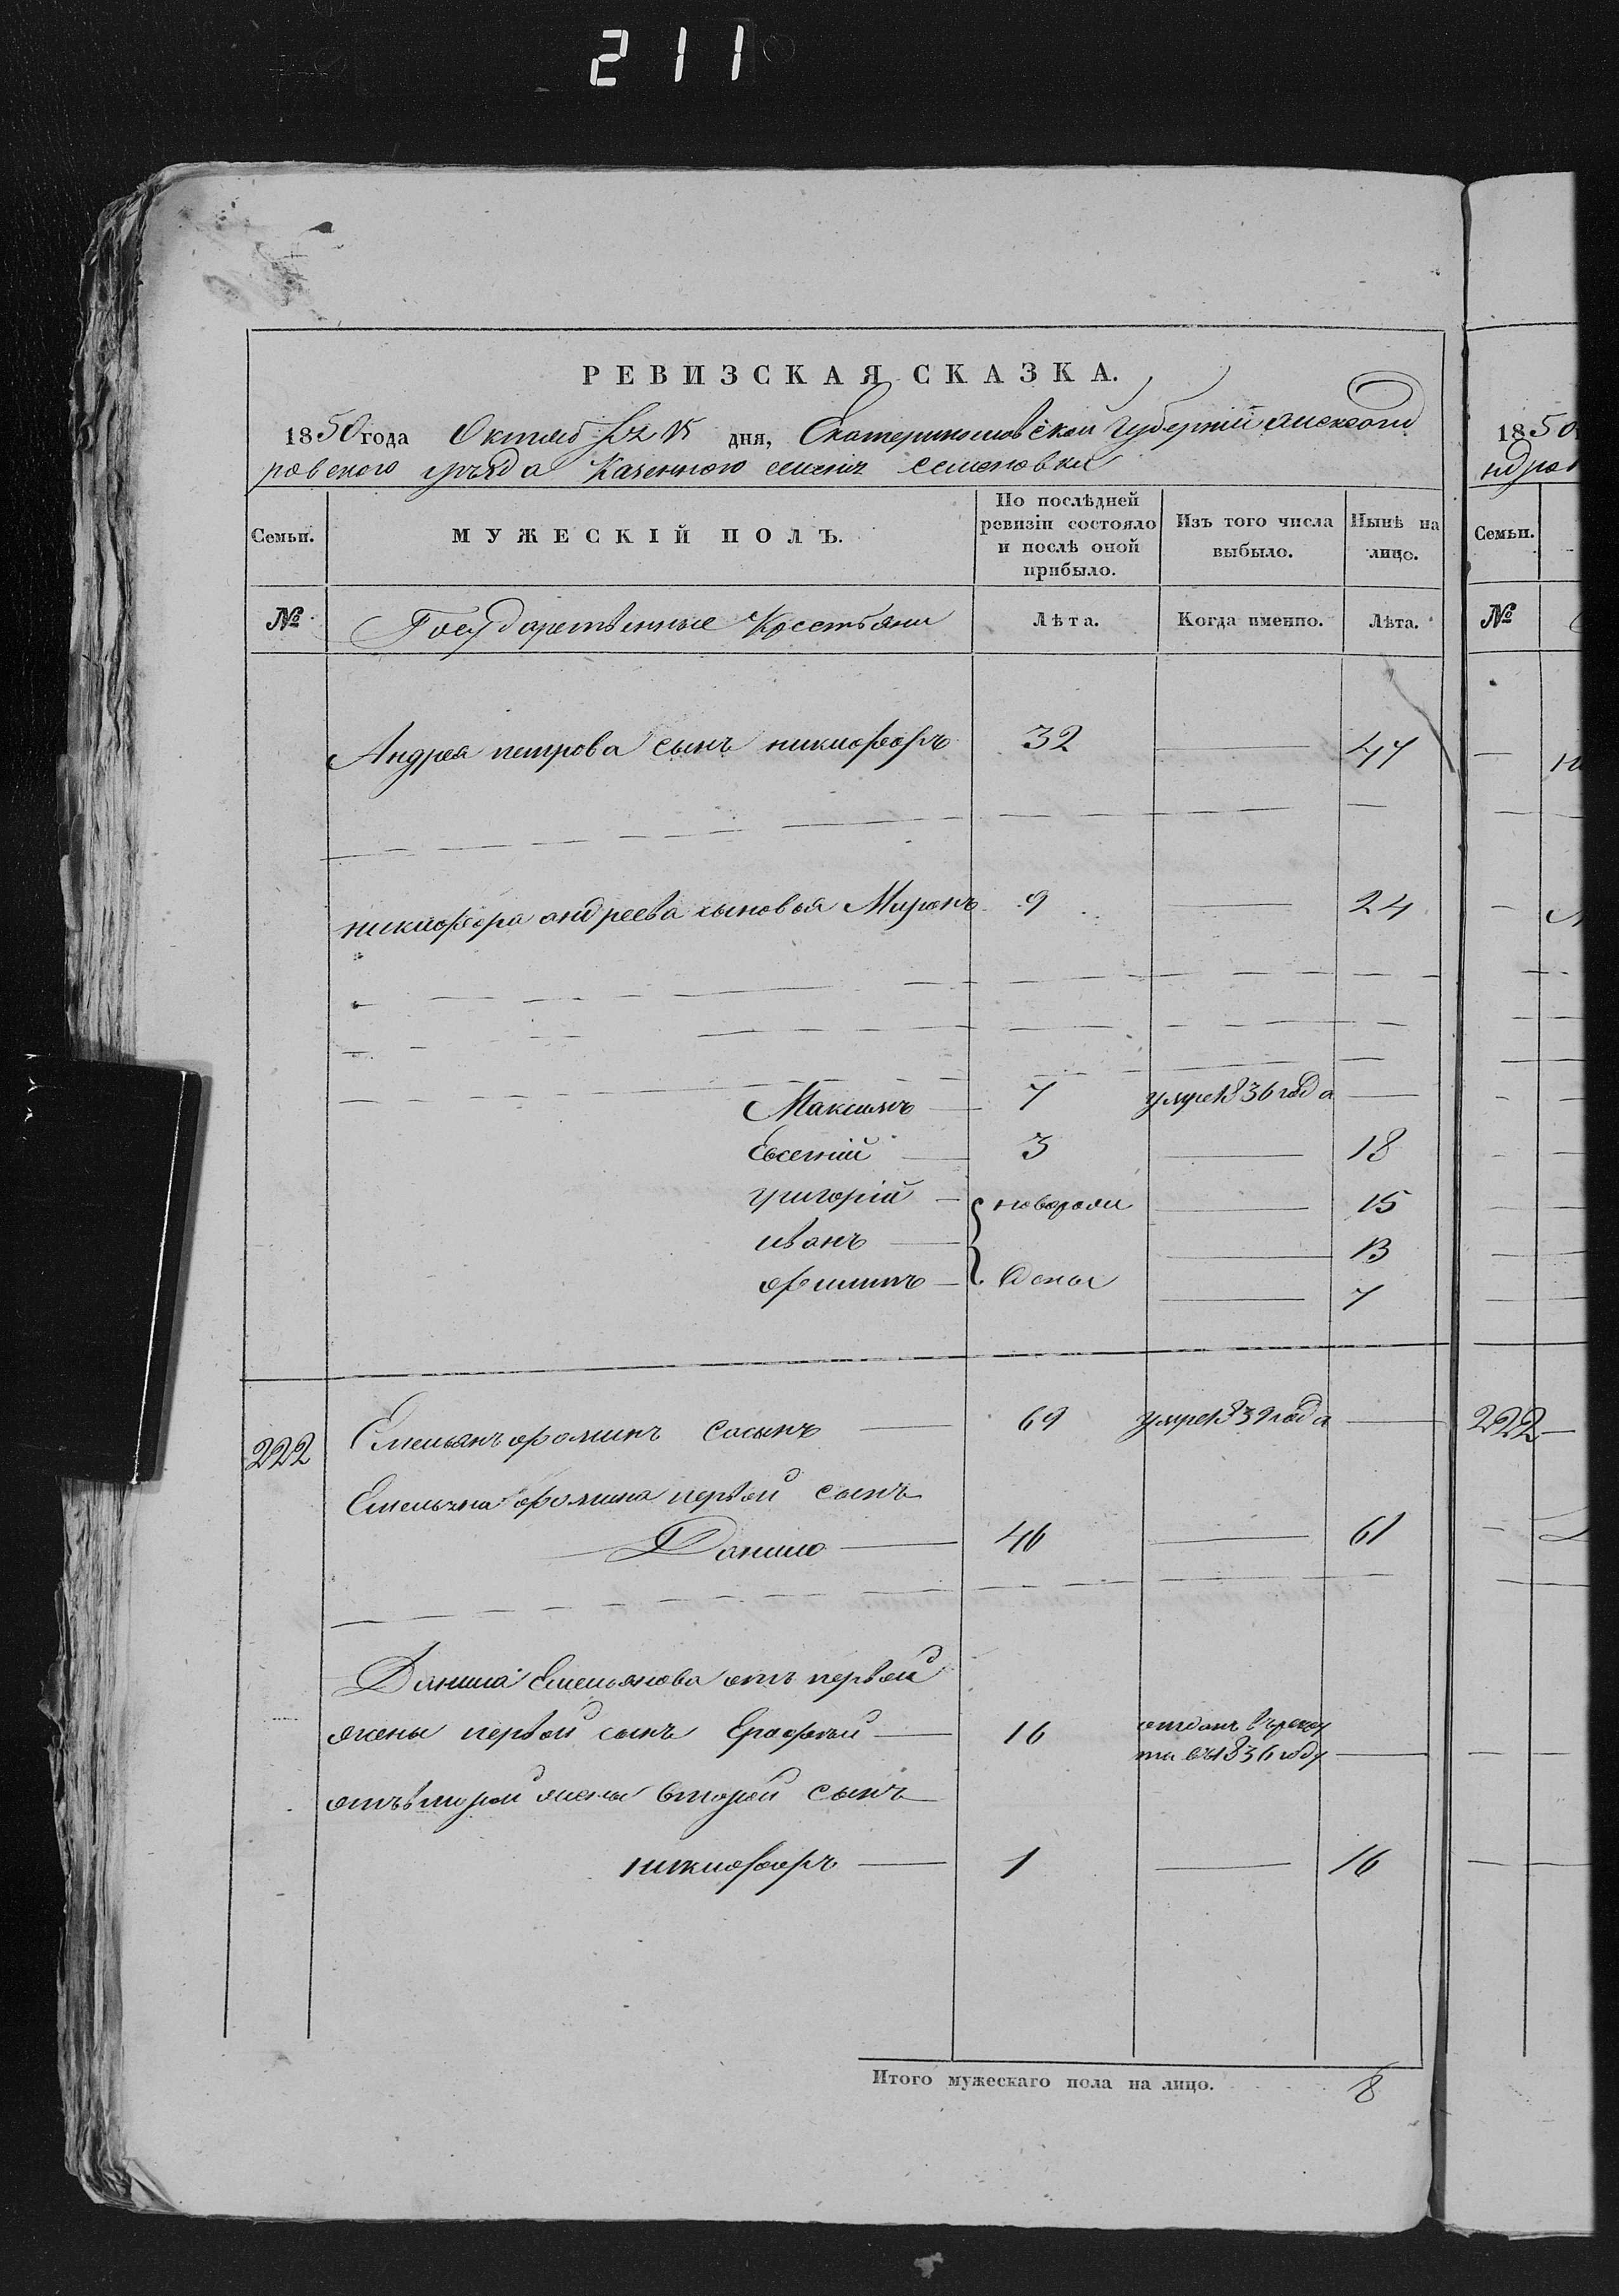 211
РЕВИЗСКАЯ СКАЗКА.
1850 года Октяб 15 дня, Екатеринославской Губерніи Александ
ровского уезда Казенного селенія Семеновки
Семьи. МУЖЕСКІЙ ПОЛЪ. По послѣдней ревизіи состояло и послѣ оной прибыло. Изъ того числа выбыло. Нынѣ на лицо.
№ Государственные Крестьяни Лѣта. Когда именно. Лѣта.
Андрея петрова сынъ никифоръ 32 47
никифора андреева сыновья Миронъ 9 24
Максимъ 7 умре 1836 года
Евсегній 3 18
григорій новорож 15
иванъ 13
филипъ денъи 7
222 Емельянъ фоминъ Сосынъ 69 умре 1839 года
Емельяна фомина первой сынъ
Данило 46 61
Данила Емельянова отъ первой
жены первой сынъ Ерофѣй 16 отданъ въ рекру
ти въ 1836 году
отъ второй жены второй сынъ
никифоръ 1 16
Итого мужескаго пола на лицо. 8
1850
ндров
Семьи.
№
222